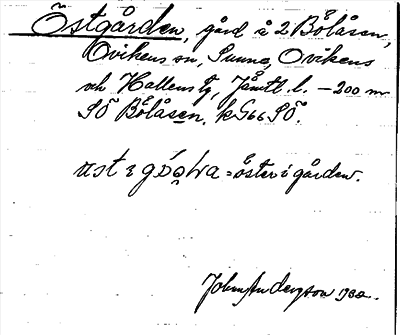 Östgården, gård å 2 Bölåsen,
Ovikens sn, Sunne, Ovikens
och Hallens tg, Jämtl. l. – 200 m
SÖ Bölåsen, k G66 SÖ.
ust i = öster i gården.
John Anderzon 1932.